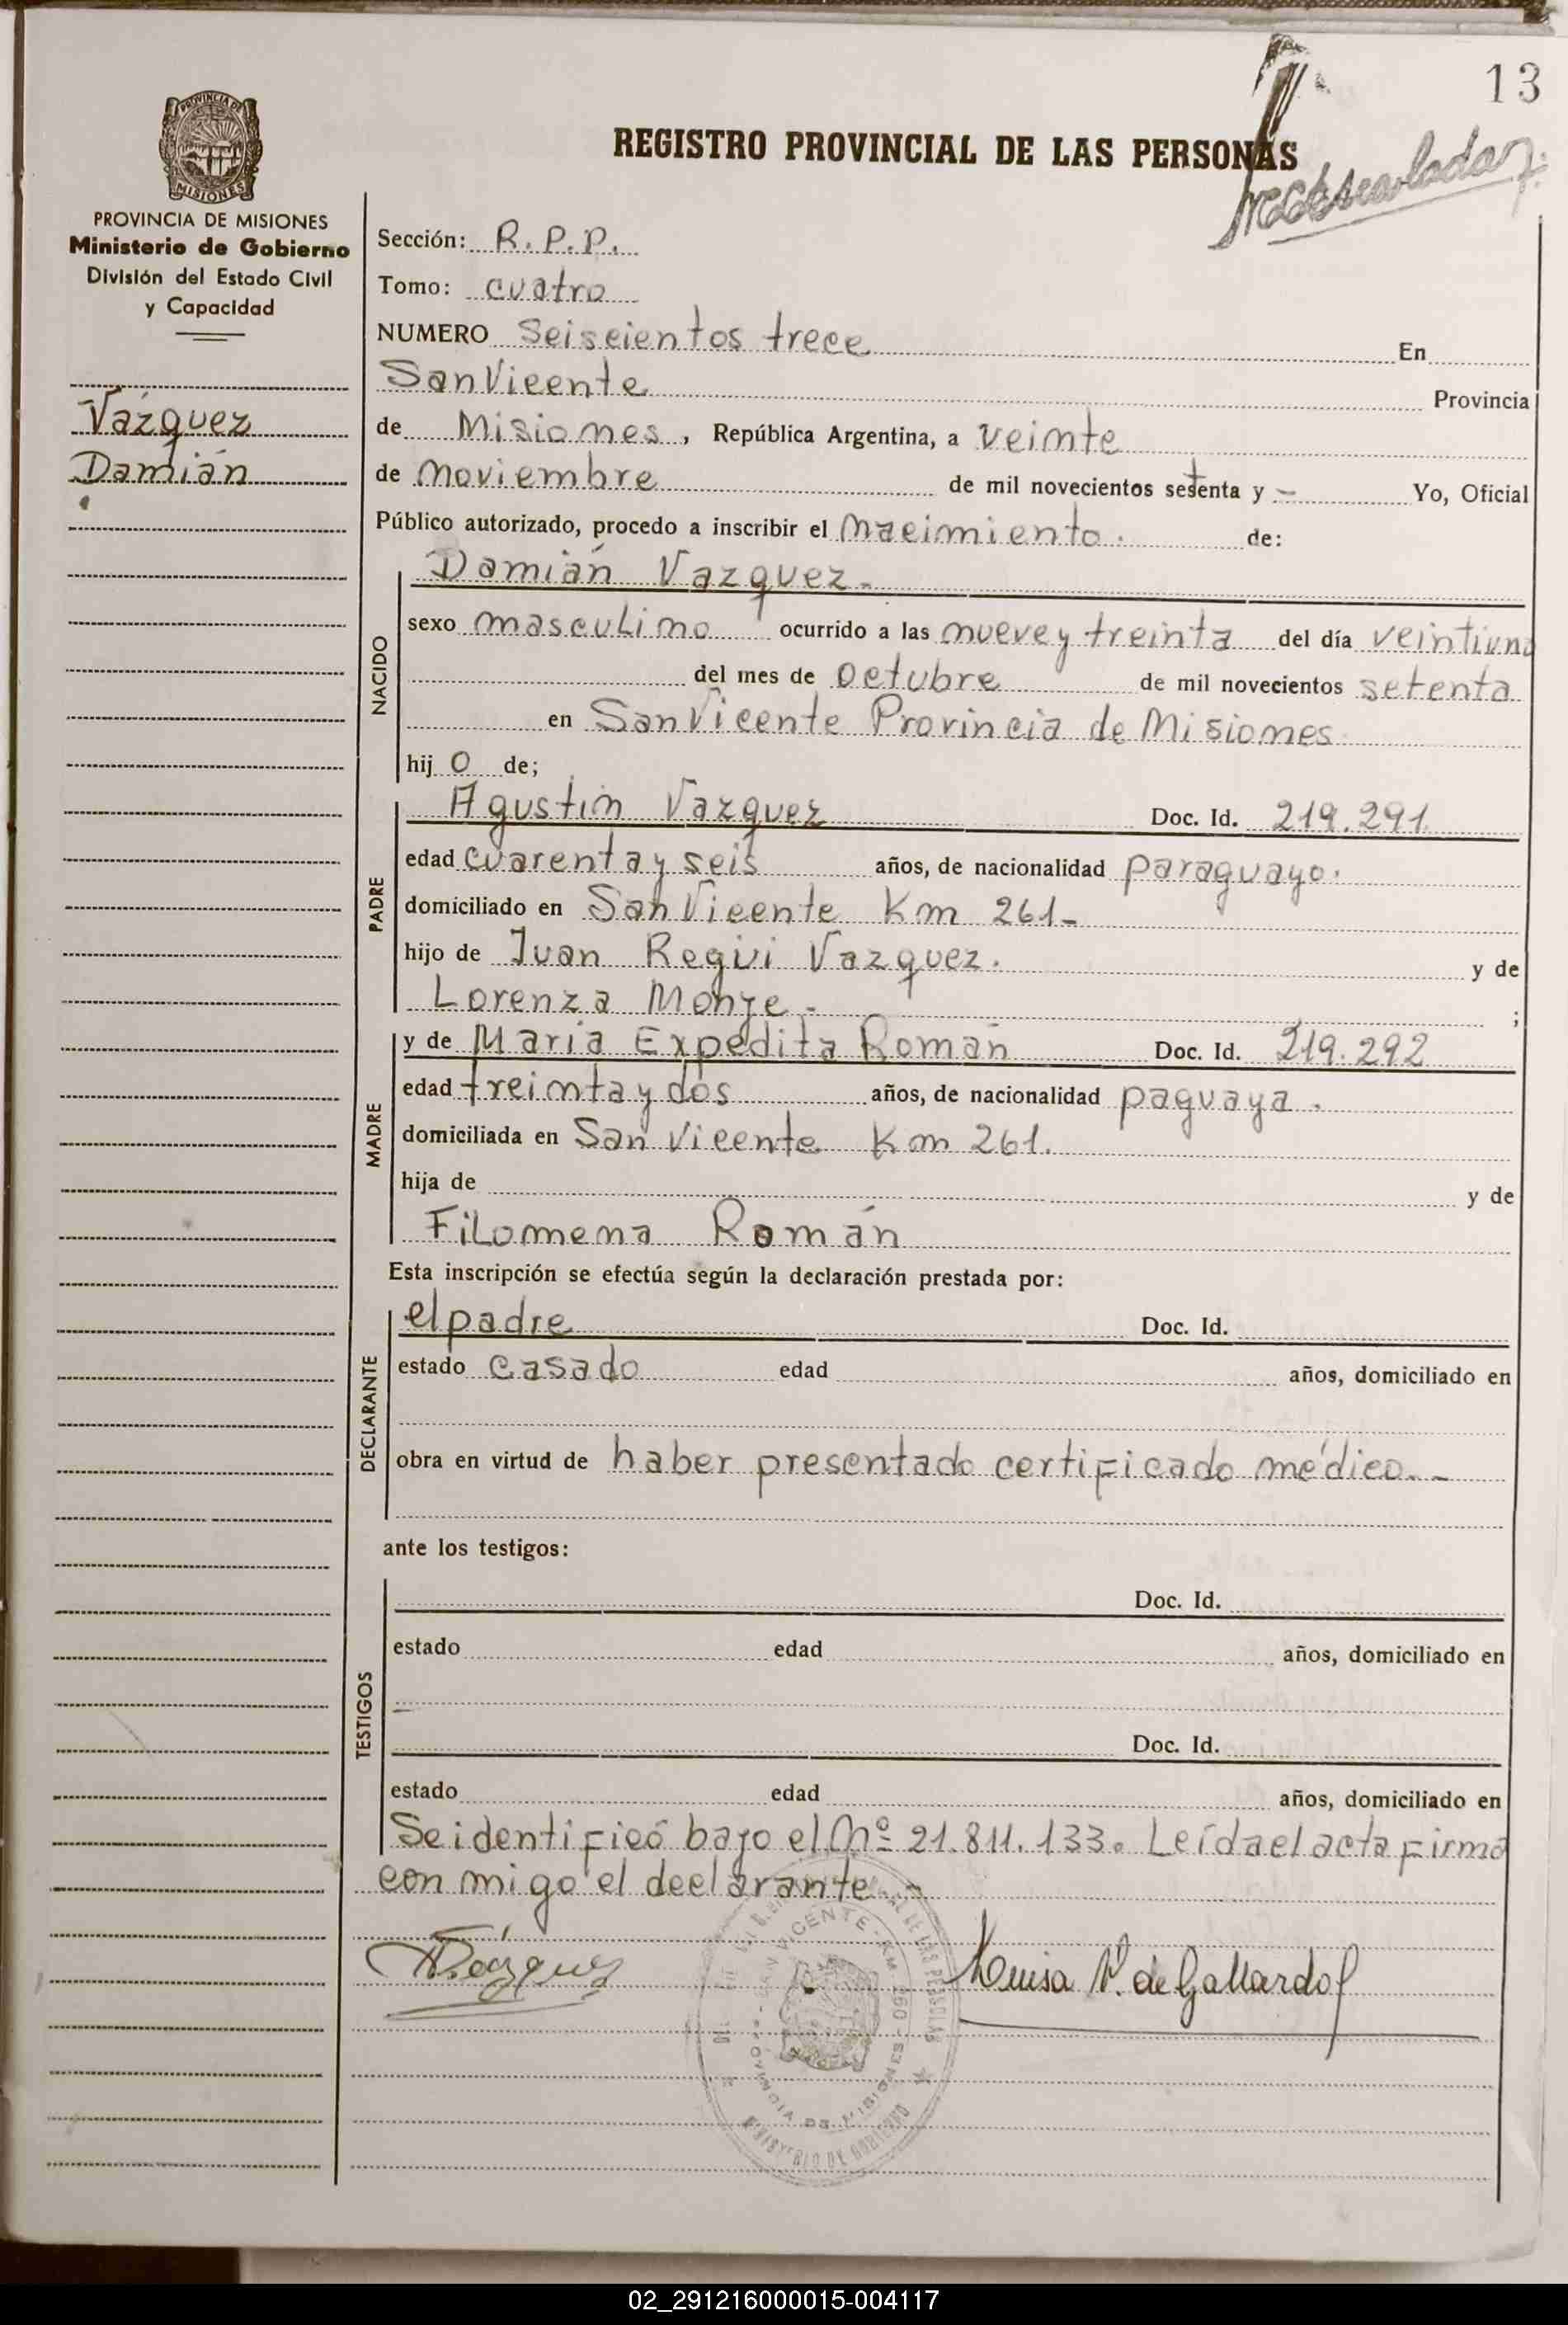 13
REGISTRO PROVINCIAL DE LAS PERSONAS
PROVINCIA DE
MISIONES
PROVINCIA DE MISIONES
Ministerio de Gobierno
División del Estado Civil
y Capacidad
Vázquez
Damián
Sección: R.P.P.
Tomo: cuatro
NUMERO Seiscientos trece En
San Vicente Provincia
de Misiones, República Argentina, a veinte
de noviembre de mil novecientos setenta y - Yo, Oficial
Público autorizado, procedo a inscribir el nacimiento. de:
NACIDO
Damián Vazquez-
sexo masculino ocurrido a las nueve y treinta del día veintiuno
del mes de Octubre de mil novecientos setenta
en San Vicente Provincia de Misiones
hij o de;
PADRE
Agustin Vazquez Doc. Id. 219.291
edad cuarenta y seis años, de nacionalidad paraguayo.
domiciliado en San Vicente Km 261-
hijo de Juan Regivi Vazquez. y de
Lorenza Monge - ;
MADRE
y de Maria Expedita Román Doc. Id. 219.292
edad treinta y dos años, de nacionalidad paguaya.
domiciliada en San Vicente Km 261.
hija de y de
Filomena Román
Esta inscripción se efectúa según la declaración prestada por:
DECLARANTE
el padre Doc. Id.
estado casado edad años, domiciliado en
obra en virtud de haber presentado certificado médico.-
ante los testigos:
TESTIGOS
Doc. Id.
estado edad años, domiciliado en
Doc. Id.
estado edad años, domiciliado en
Se identificó bajo el Nº 21.811.133. Leída el acta firma
con migo el declarante.-
Vázquez
Luisa V. de Gallardo
SAN VICENTE - KM 260 - PROVINCIA DE MISIONES
DE LAS PERSONAS
MINISTERIO DE GOBIERNO
02_291216000015-004117